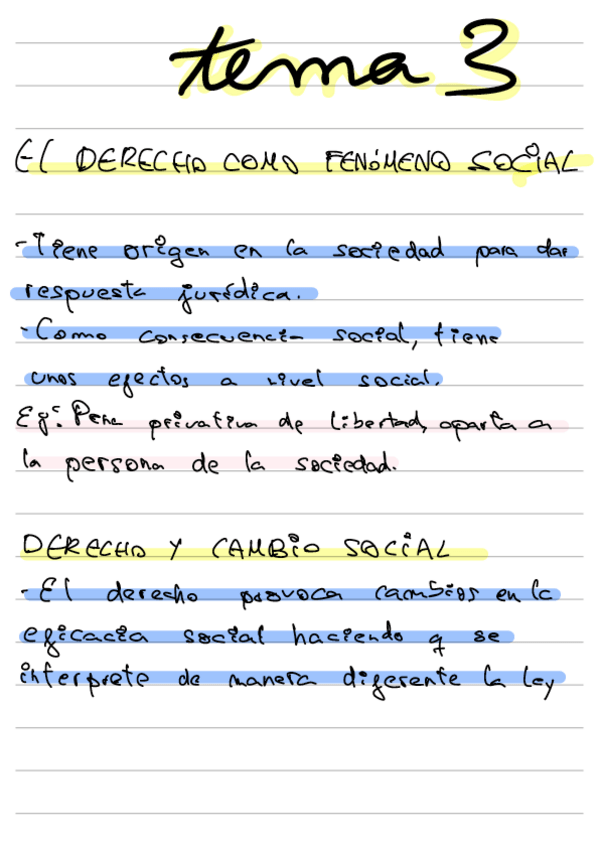 tema 3
El DERECHO COMO FENÓMENO SOCIAL
-Tiene origen en la sociedad para dar
respuesta jurídica.
-Como consecuencia social, tiene
unos efectos a nivel social.
Ej: Pena privativa de libertad, aparta a
la persona de la sociedad.
DERECHO Y CAMBIO SOCIAL
-El derecho provoca cambios en la
eficacia social haciendo q se
interprete de manera diferente la ley